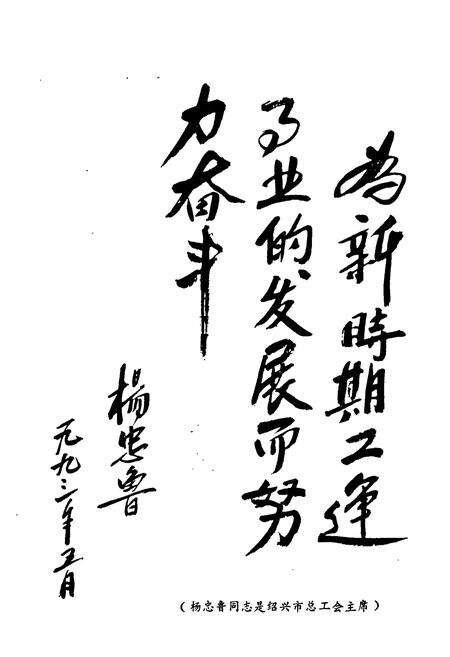 為新時期工運
事业的发展而努
力奋斗
楊忠魯
一九九三年五月
（杨忠鲁同志是绍兴市总工会主席）